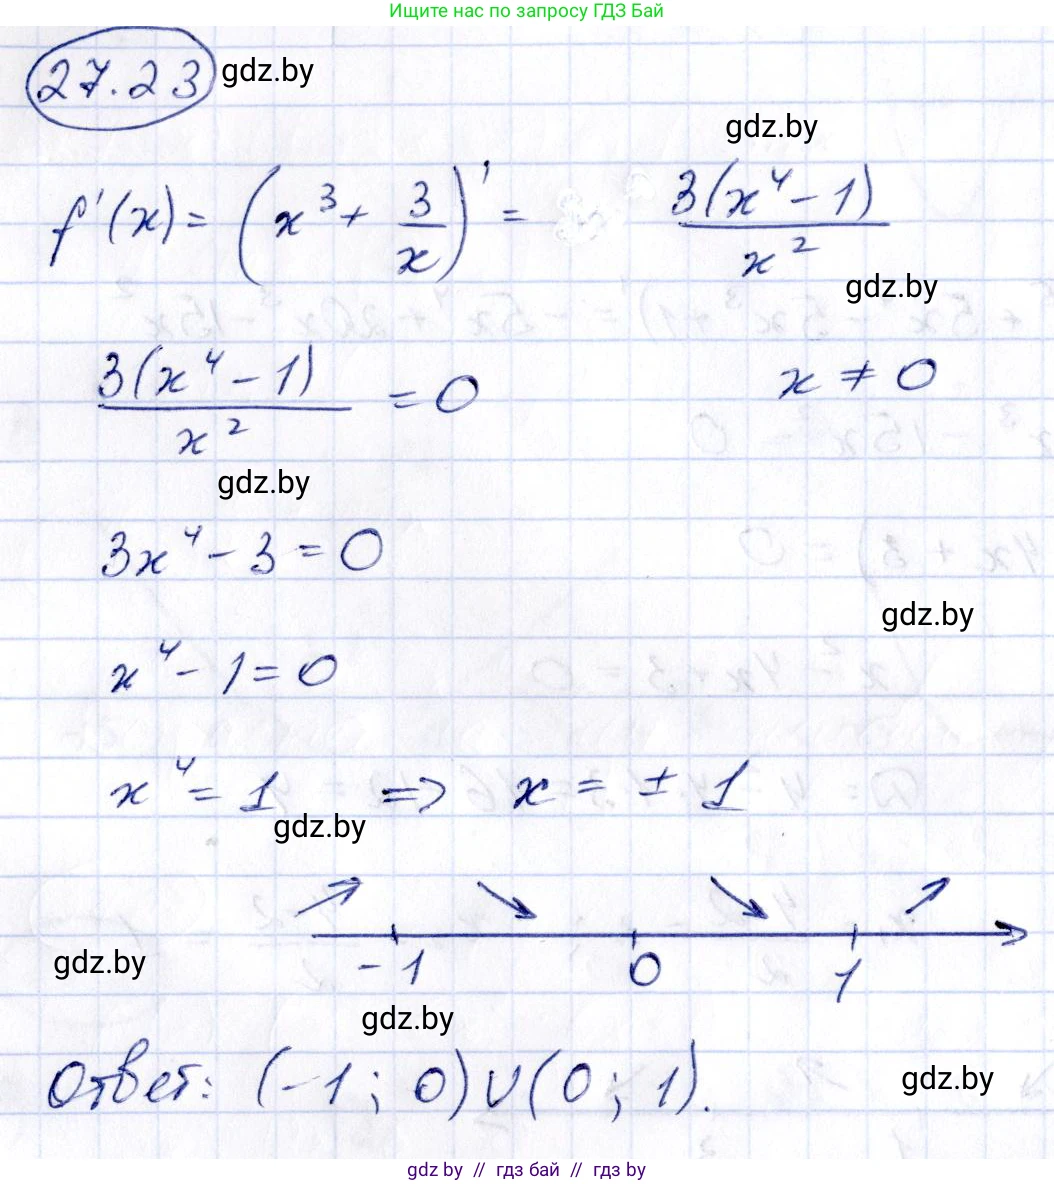 Ищите нас по запросу ГДЗ Бай
27.23 gdz.by
gdz.by
f'(x) = (x³ + 3/x)' = 3(x⁴ - 1)/x²
gdz.by
3(x⁴ - 1)/x² = 0 x ≠ 0
gdz.by
3x⁴ - 3 = 0
gdz.by
x⁴ - 1 = 0
x⁴ = 1 => x = ± 1
gdz.by
-1 0 1
gdz.by
gdz.by
Ответ: (-1; 0) ∪ (0; 1).
gdz.by
gdz by // гдз бай // гдз by